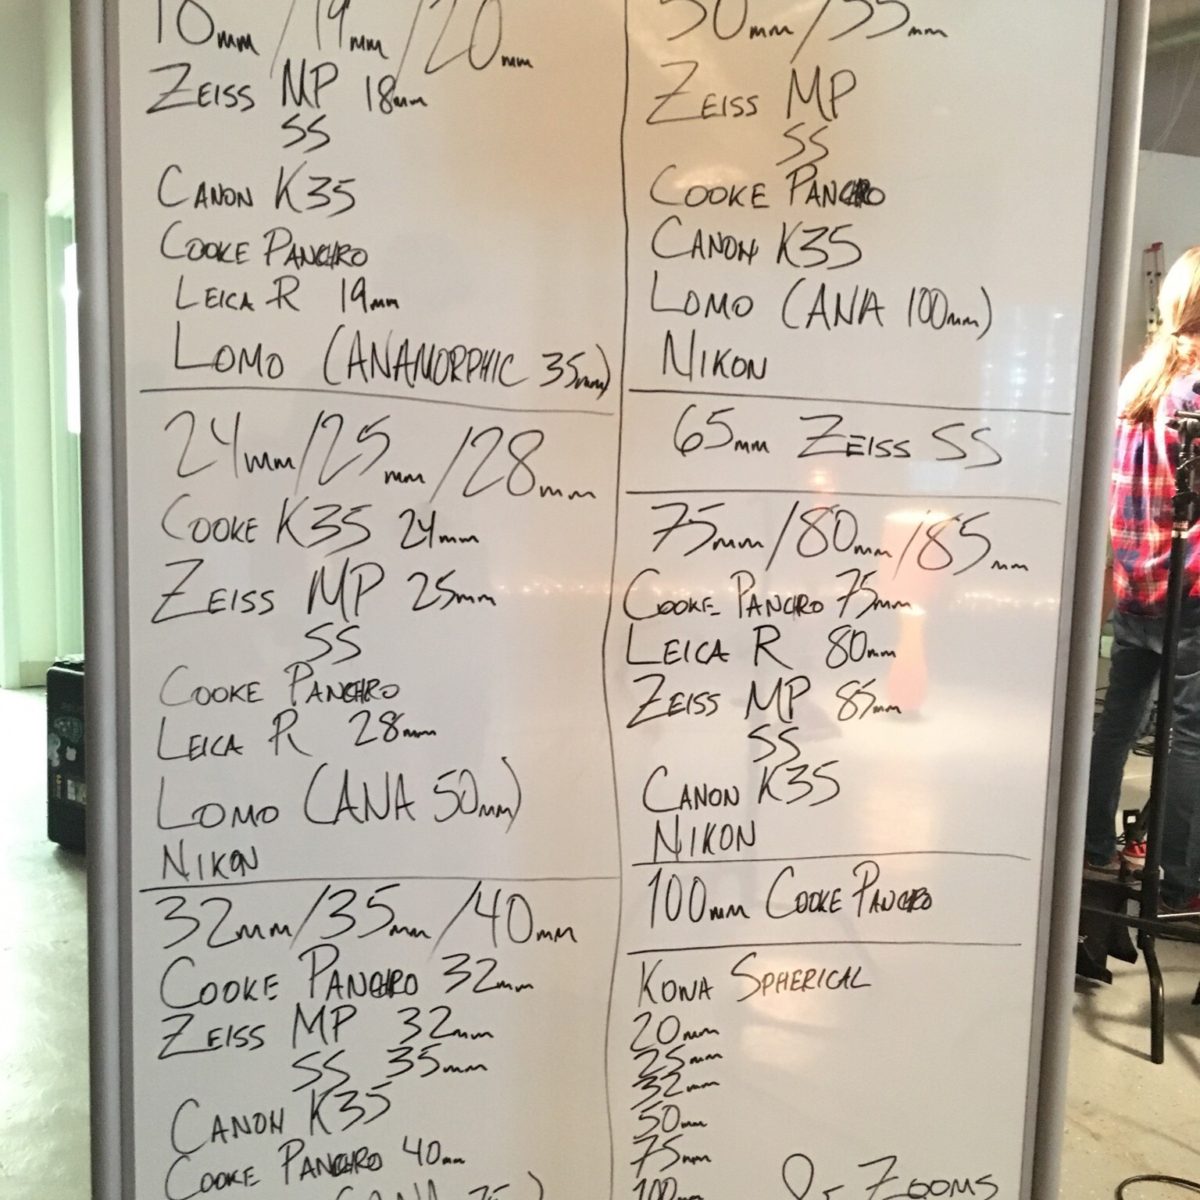 18mm/19mm/20mm
ZEISS MP 18mm
SS
CANON K35
COOKE PANCHRO
LEICA R 19mm
LOMO (ANAMORPHIC 35mm)
24mm/25mm/28mm
COOKE K35 24mm
ZEISS MP 25mm
SS
COOKE PANCHRO
LEICA R 28mm
LOMO (ANA 50mm)
NIKON
32mm/35mm/40mm
COOKE PANCHRO 32mm
ZEISS MP 32mm
SS 35mm
CANON K35
COOKE PANCHRO 40mm
50mm/55mm
ZEISS MP
SS
COOKE PANCHRO
CANON K35
LOMO (ANA 100mm)
NIKON
65mm ZEISS SS
75mm/80mm/85mm
COOKE PANCHRO 75mm
LEICA R 80mm
ZEISS MP 85mm
SS
CANON K35
NIKON
100mm COOKE PANCHRO
KOWA SPHERICAL
20mm
25mm
32mm
50mm
75mm
100mm
ZOOMS